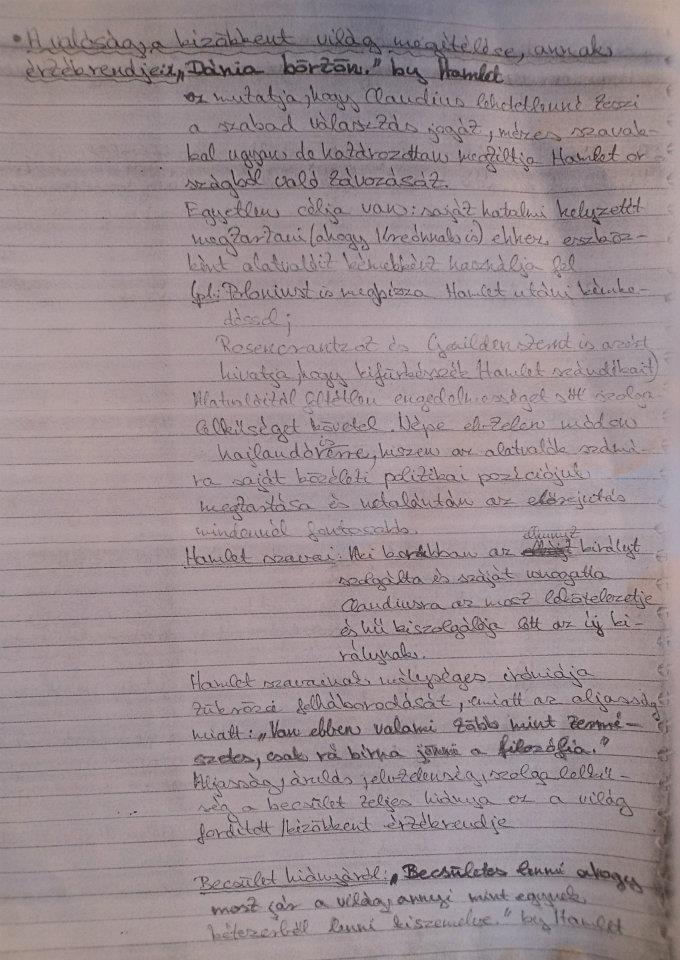 • A valóság, a kizökkent világ megítélése, annak
értékrendje: „Dánia börtön." by Hamlet
ez mutatja, hogy Claudius lehetetlenné teszi
a szabad választás jogát, mézes szavak-
kal ugyan de határozottan megtiltja Hamlet or
szágból való távozását.
Egyetlen célja van: saját hatalmi helyzetét
megtartani (ahogy Kreónnak is) ehhez eszköz-
ként alatvalóit kémekként használja fel
(pl: Poloniust is megbízza Hamlet utáni kémke-
déssel;
Rosencrantzot és Guildensternt is azért
hivatja, hogy kifürkésszék Hamlet szándékait)
Alatvalóitól feltétlen engedelmességet sőt szolga
lelkűséget követel. Népe elvtelen módon
hajlandó is erre, hiszen az alatvalók számá-
ra saját közéleti politikai pozíciójuk
megtartása és netalántán az előrejutás
mindennél fontosabb.
Hamlet szavai: Aki korábban az elhunyt királyt
szolgálta és száját vonogatta
Claudiusra az most lekötelezetje
és hű kiszolgálója lett az új ki-
rálynak.
Hamlet szavainak mélységes iróniája
tükrözi felháborodását, emiatt az aljasság
miatt: „Van ebben valami több mint termé-
szetes, csak rá bírna jönni a filozófia."
Aljasság, árulás, elvtelenség, szolga lelkű-
ség a becsület teljes hiánya ez a világ
fordított/kizökkent értékrendje
Becsület hiányáról: „Becsületes lenni ahogy
most jár a világ, annyi mint egynek
kétezerből lenni kiszemelve." by Hamlet